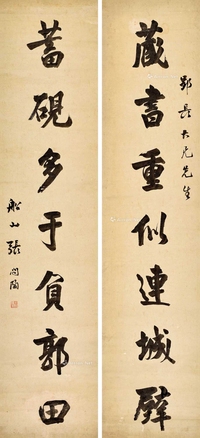 藏書重似連城璧
長大兄先生
蓄硯多于負郭田
船山張問陶